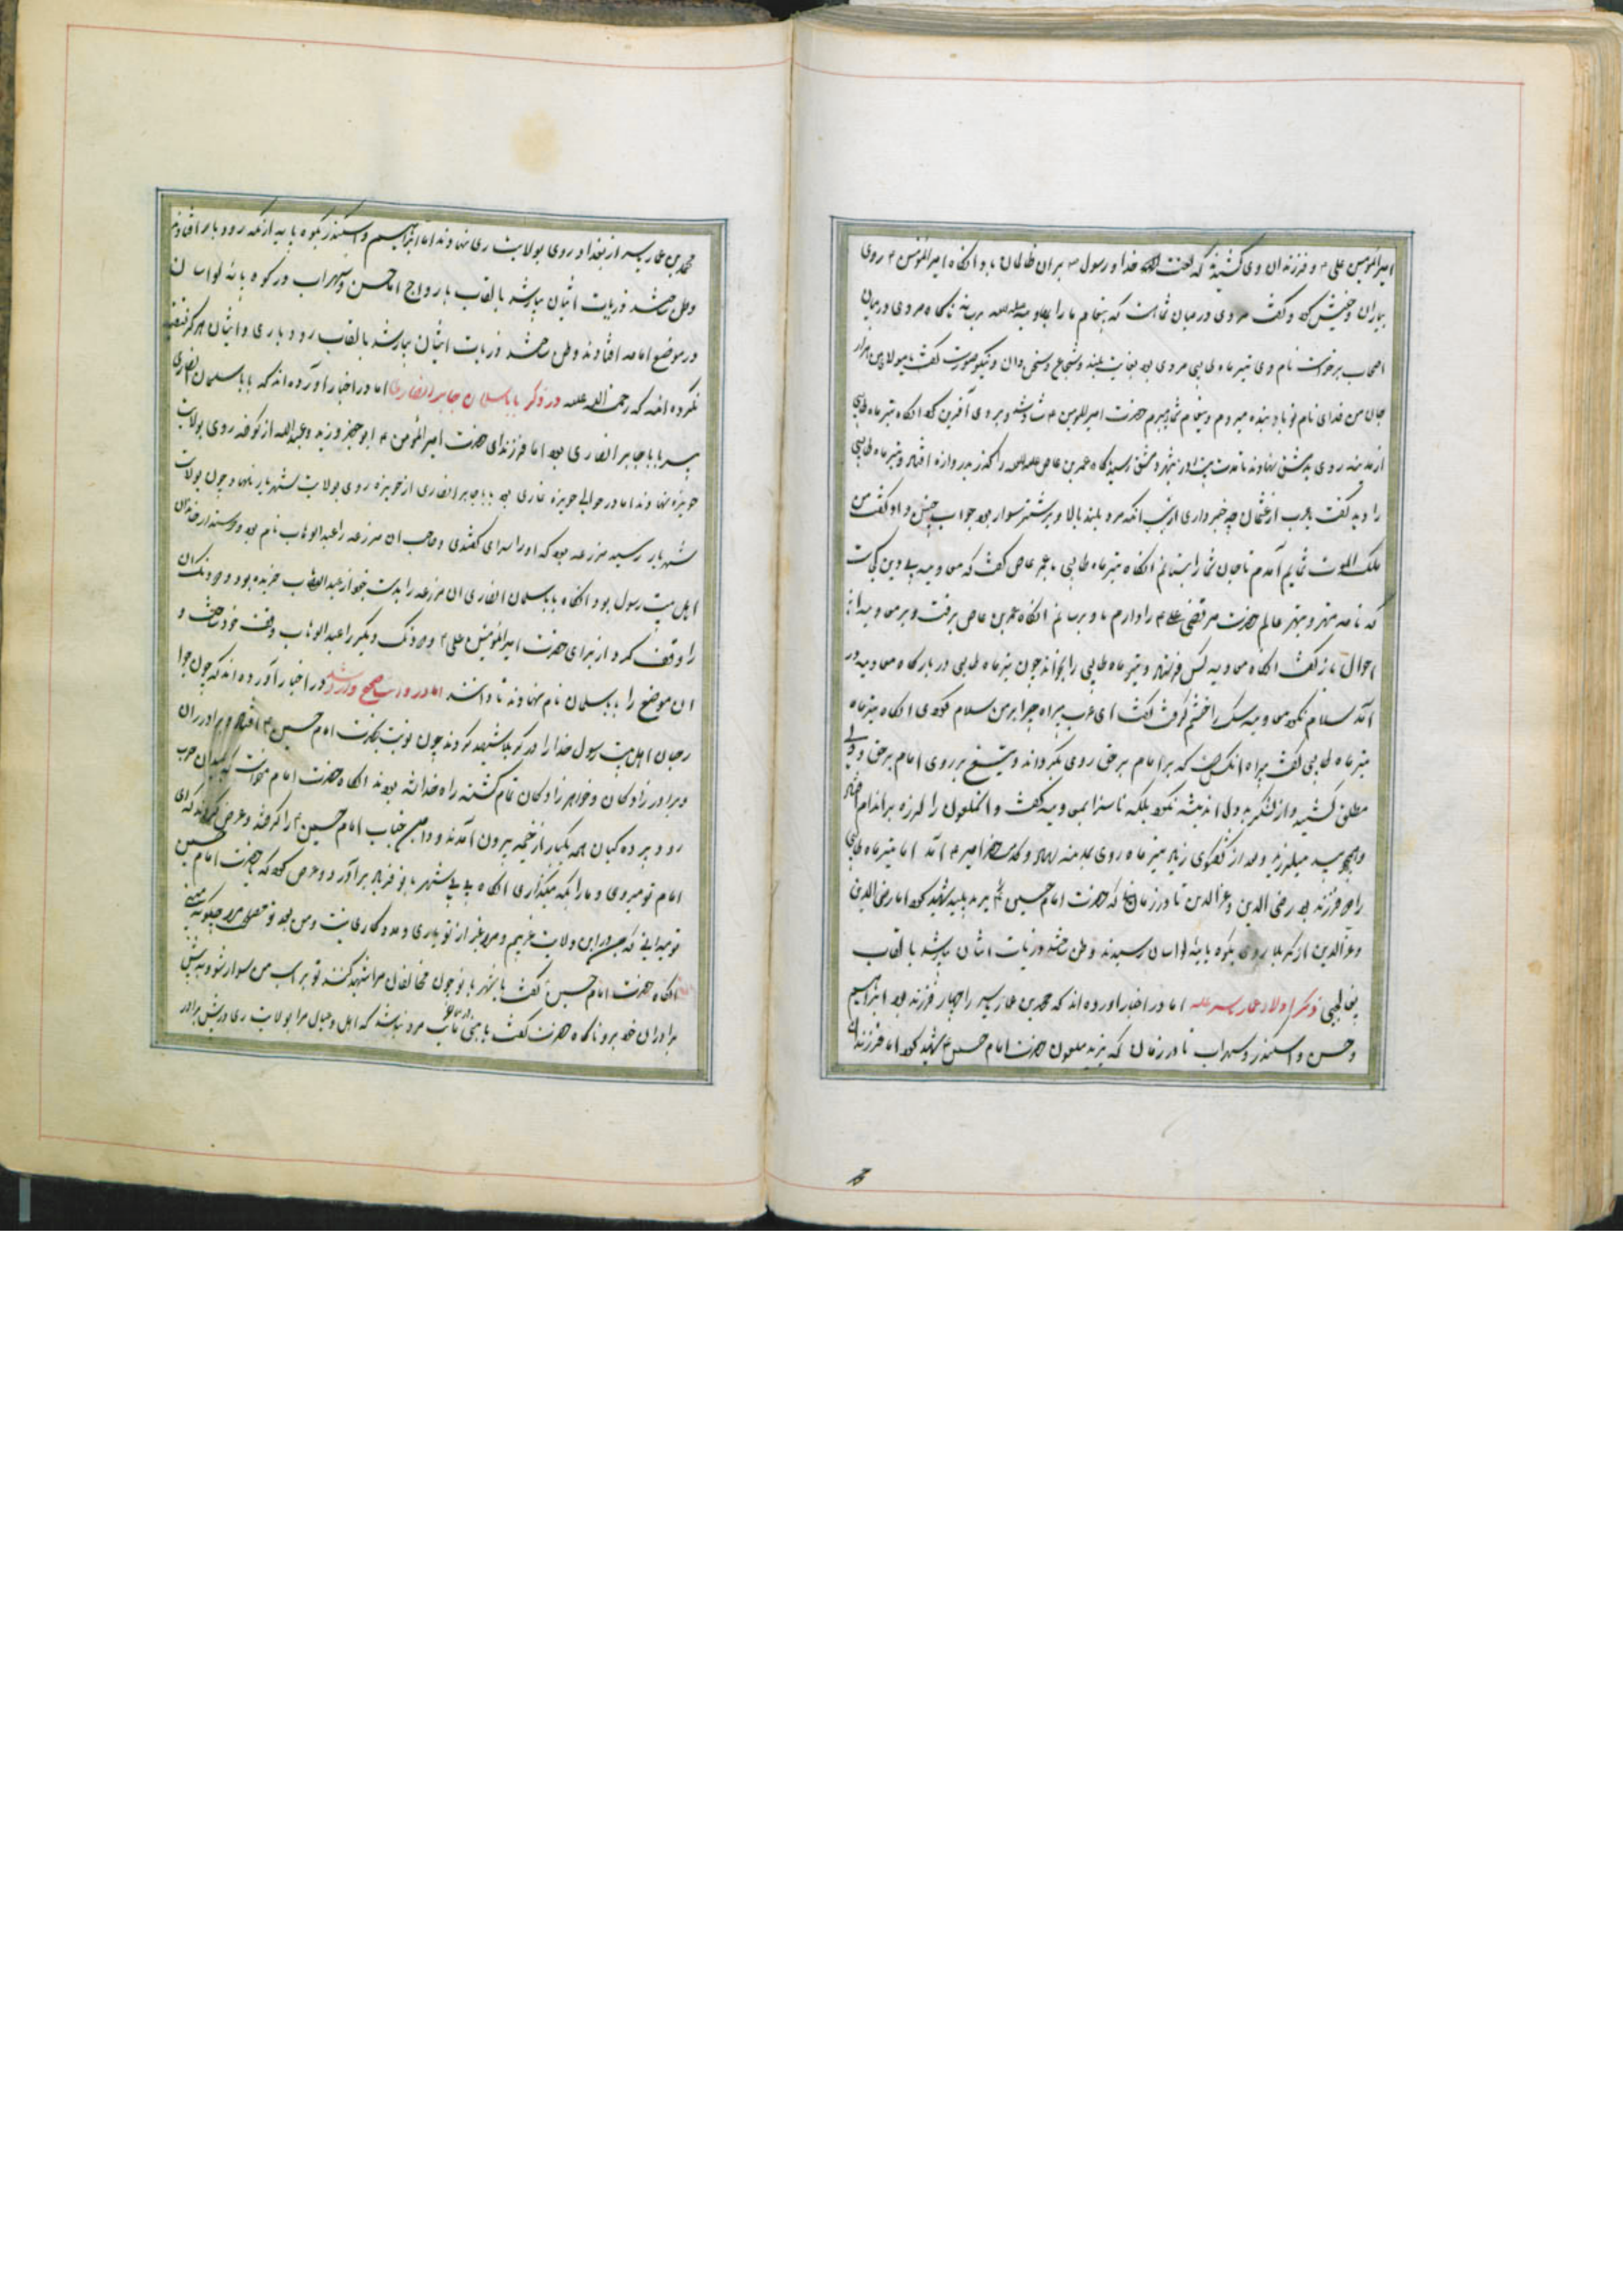 امیرالمؤمنین علی ع و فرزندان وی کشیده که لعنت خدا و رسول بر آن ظالمان باد و انکاه امیرالمؤمنین ع روی
بیاران خویش کرد و گفت مردی در میان شما هست که پیغام ما را بمعاویه برساند ناکاه مردی در میان
اصحاب برخواست نام وی تیر ماه طایی مردی بود بغایت بلند و شجاع و سخن دان و نیکو صورت گفت یا مولا من هزار
جان من فدای نام تو باد بنده میروم و پیغام شما میبرم حضرت امیرالمؤمنین ع شاد شد و بر وی آفرین کرد انکاه تیر ماه طایی
از مدینه روی بدمشق نهاوند تا بدمشق رسید ناکاه عمر بن عاص را گذر بدروازه افتاد و تیر ماه طایی
را دید گفت یا عرب از عثمان چه خبر داری از انکه مرد بلند بالا و بر شتر سوار بود جواب چنین داد گفت من
ملک الموت شمایم آمدم تا جان شما را بستانم انکاه تیر ماه طایی با عمر عاص گفت که معاویه بی دین کجاست
که نامه مهتر و بهتر عالم حضرت مرتضی علی ع را دارم باو برسانم انکاه عمر بن عاص برفت و بر معاویه از
احوال باز گفت انکاه معاویه کس فرستاد و تیر ماه طایی را بخواند چون تیر ماه طایی در بارگاه معاویه در
آمد سلام نکرد معاویه سک را خشم گرفت گفت ای عرب بیراه چرا بر من سلام نکردی انکاه تیر ماه
تیر ماه طایی گفت بیراه انکس است که بر امام بر حق روی بگرداند و تیغ بر روی امام بر حق و ولی
مطلق کشید و از لشکر بد دل اندیشه نکرد بلکه ناسزا بمعاویه گفت و انملعون را لرزه بر اندام افتاد
و همچو بید میلرزید و بعد از گفتگوی زیاد تیر ماه روی بمدینه نهاد و بخدمت حضرت امیر ع آمد اما تیر ماه طایی
را دو فرزند بود رضی الدین و عز الدین تا در زمانی که حضرت امام حسین ع یزید پلید شهید کرد اما رضی الدین
و عز الدین از کربلا روی بکوه پایه لواسان رسیدند وطن ساختند و ذریات ایشان میباشد بالقاب
ذکر اولاد عمار یاسر اما در اخبار آورده اند که محمد بن عمار یاسر را چهار فرزند بود ابراهیم
و حسن و اسکندر و سهراب تا در زمان که یزید ملعون حضرت امام حسین ع شهید کرد اما فرزندان
محمد بن عمار یاسر از بغداد روی بولایت ری نهاوند اما ابراهیم و اسکندر بکوه پایه از انکه رودبار افتادند
وطن ساختند ذریات ایشان میباشد بالقاب باروراج اما حسن و سهراب در کوه پایه لواسان
در موضع امامه افتادند وطن ساختند ذریات ایشان میباشد بالقاب رودباری و ایشان هرگز
نکرده اند که رحمت الله علیه در ذکر بابا سلمان جابر انصاری اما در اخبار آورده اند که بابا سلمان انصاری
پسر بابا جابر انصاری بود اما فرزندان حضرت امیرالمؤمنین ع ابو جعفر و زید و عبدالله از کوفه روی بولایت
حویزه نهاوند اما در حوالی حویزه غاری بود بابا جابر انصاری از حویزه روی بولایت شهریار نهاد و چون بولایت
شهریار رسید مزرعه بود که او را سرای کفتندی و صاحب آن مزرعه را عبدالوهاب نام بود و دوستدار خاندان
اهل بیت رسول بود و انکاه بابا سلمان انصاری ان مزرعه را بدست خود از عبدالوهاب خریده بود و دو دنک آن
را وقف کرد از برای حضرت امیرالمؤمنین علی ع و دو دنک دیگر را عبدالوهاب وقف خود ساخت و
ان موضع را بابا سلمان نام نهاوند تا دانند اما در روایت صحیح وارد شد در اخبار آورده اند که چون جوا
رحمان اهل بیت رسول خدا را در کربلا شهید کردند چون نوبت بحضرت امام حسین ع افتاد و برادران
و برادر زادکان و خواهر زادکان تمام کشته راه خدا شده بودند انکاه حضرت امام خواست که بمیدان حرب
رود پرده کیان همه یکبار از خیمه بیرون آمدند و دامن جناب امام حسین ع را گرفتند و عرض کردند که ای
امام تو میروی و ما را بکه میگذاری انکاه بی بی شهر بانو فریاد برآورد و عرض کرد که یا حضرت امام حسین
تو میدانی که من در این ولایت غریبم و مرا بغیر از تو یاری و مددکاری نیست و من بعد تو حال من چگونه
انکاه حضرت امام حسین گفت یا شهر بانو چون مخالفان مرا شهید کنند تو بر اسب من سوار شو و به پیش
برادران خود برو ناکاه حضرت گفت یا مرد نباشد که اهل و عیال مرا بولایت ری در پیش برادر